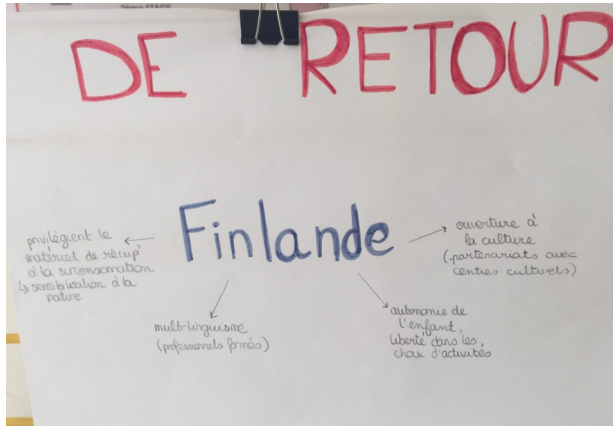 DE RETOUR
Finlande
privilégient le
matériel de récup'
à la surconsomation
↳ sensibilisation à la
nature
multi-linguisme
(professionnels formés)
autonomie de
l'enfant,
liberté dans les,
choix d'activités
ouverture à
la culture
(partenariats avec
centres culturels)